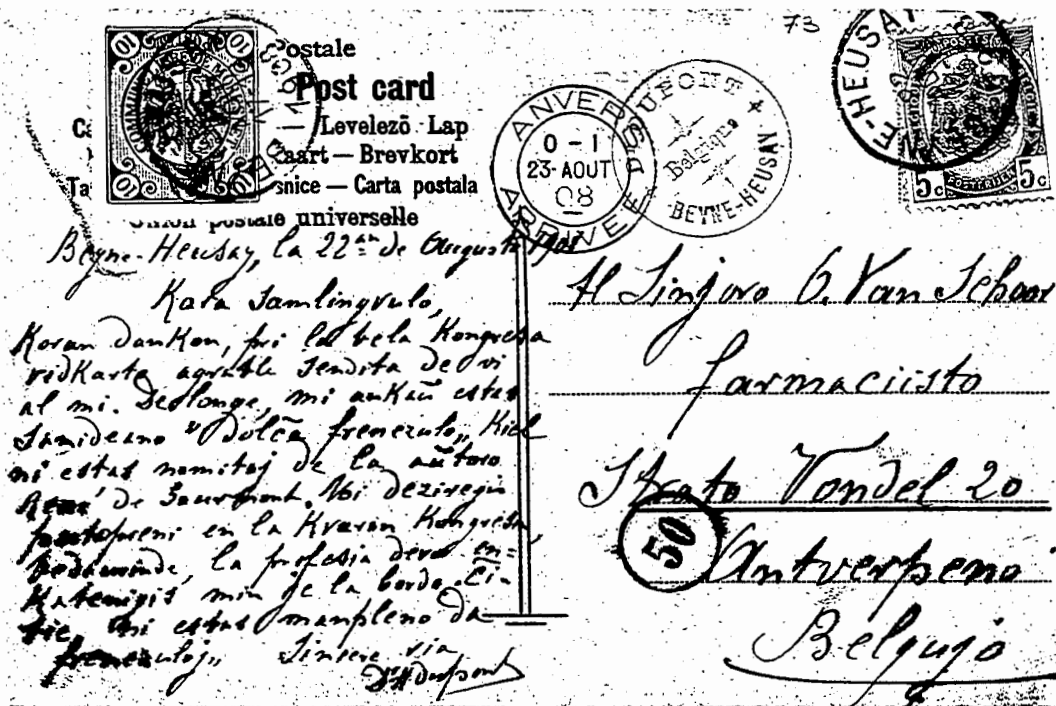 73
10 10
COMMUNE LIBRE DE MORESNET
10 10
Postale
Post card
Levelező Lap
Brevkort
Carta postala
Union postale universelle
ANVERS
0 - 1
23 AOUT
08
ARRIVEE
DUPONT
Belgique
BEYNE-HEUSAY
E-HEUSAY
5c 5c
Beyne-Heusay, la 22an de Augusto 1908
Kara Samlingvulo,
Koran dankon, pri la bela Kongresa
vidKarto agrable sendita de vi
al mi. Delonge, mi ankaŭ estas
Samideano "dolĉa frenezulo„ Kiel
ni estas nomitaj de la aŭtoro
de Gourmont. Mi deziregis
partopreni en la Kvaran Kongreson
bedaŭrinde, la profesia devo en=
Katenigis min je la bordo. Ĉi-
tie, ni estas manpleno da
frenezuloj„ Sincere via
Dupont
Al Sinjoro O. Van Schoor
farmaciisto
Strato Vondel 20
50
Antverpeno
Belgujo